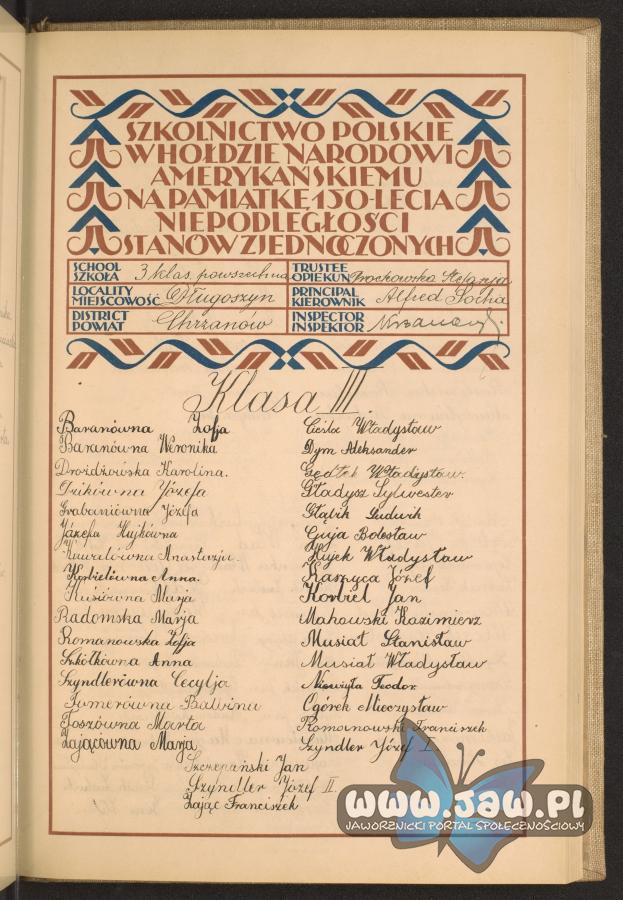 SZKOLNICTWO POLSKIE
W HOŁDZIE NARODOWI
AMERYKAŃSKIEMU
NA PAMIĄTKĘ 150-LECIA
NIEPODLEGŁOŚCI
STANÓW ZJEDNOCZONYCH
SCHOOL SZKOŁA 3 klas. powszechna
TRUSTEE OPIEKUN Prochowska Stefanja
LOCALITY MIEJSCOWOŚĆ Długoszyn
PRINCIPAL KIEROWNIK Alfred Socha
DISTRICT POWIAT Chrzanów
INSPECTOR INSPEKTOR
Klasa III.
Baranówna Zofja
Baranówna Weronika
Drożdżowska Karolina.
Dzikówna Józefa
Grabaniówna Józefa
Józefa Hujkówna
Anastazja
Korbielówna Anna.
Kusiówna Marja
Radomska Marja
Romanowska Zofja
Szkółkówna Anna
Szyndlerówna Cecylja
Tumerówna Balbina
Toszówna Marta
Zającówna Marja
Cieśla Władysław
Dym Aleksander
Gędłek Władysław.
Gładysz Sylwester
Głąbik Ludwik
Guja Bolesław
Hujek Władysław
Kaszyca Józef
Korbiel Jan
Mahowski Kazimierz
Musiał Stanisław
Musiał Władysław
Niewijta Teodor
Ogórek Mieczysław
Romanowski Franciszek
Szyndler Józef I.
Szczepański Jan
Szyndler Józef II.
Zając Franciszek
www.jaw.pl
JAWORZNICKI PORTAL SPOŁECZNOŚCIOWY